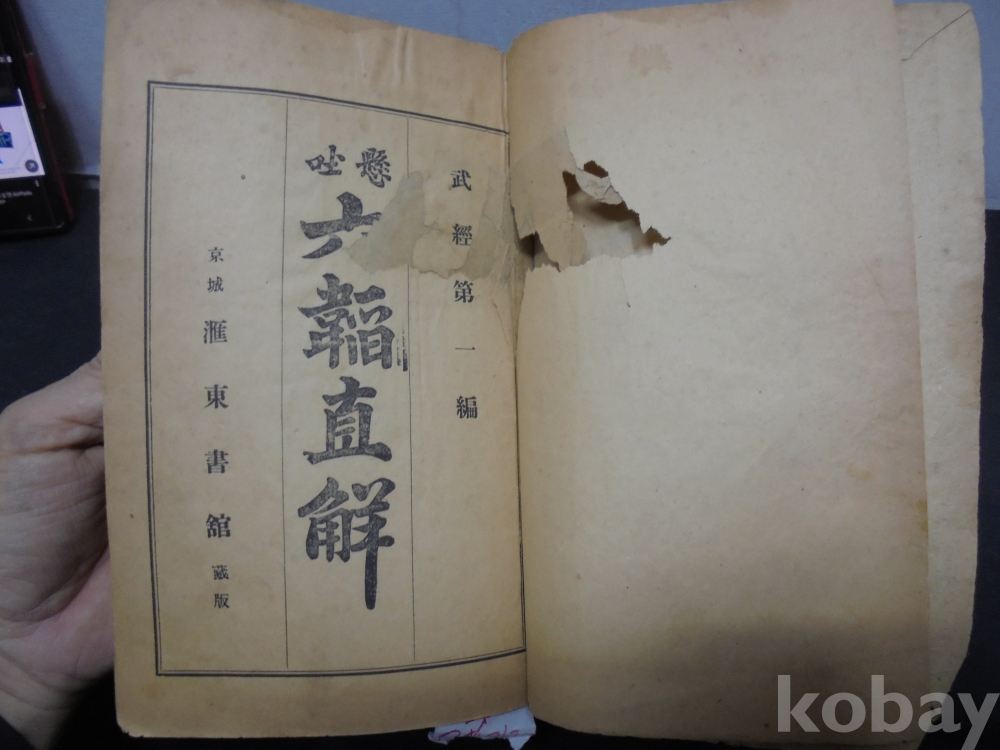 武經第一編
懸吐
六韜直解
京城 滙東書舘 藏版
kobay